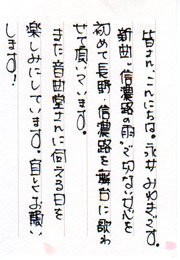 皆さん、こんにちは。永井みゆきです。
新曲“信濃路の雨”で切ない女心を
初めて長野・信濃路を舞台に歌わ
せて頂いています。
また音曲堂さんに伺える日を
楽しみにしています。宜しくお願い
します!